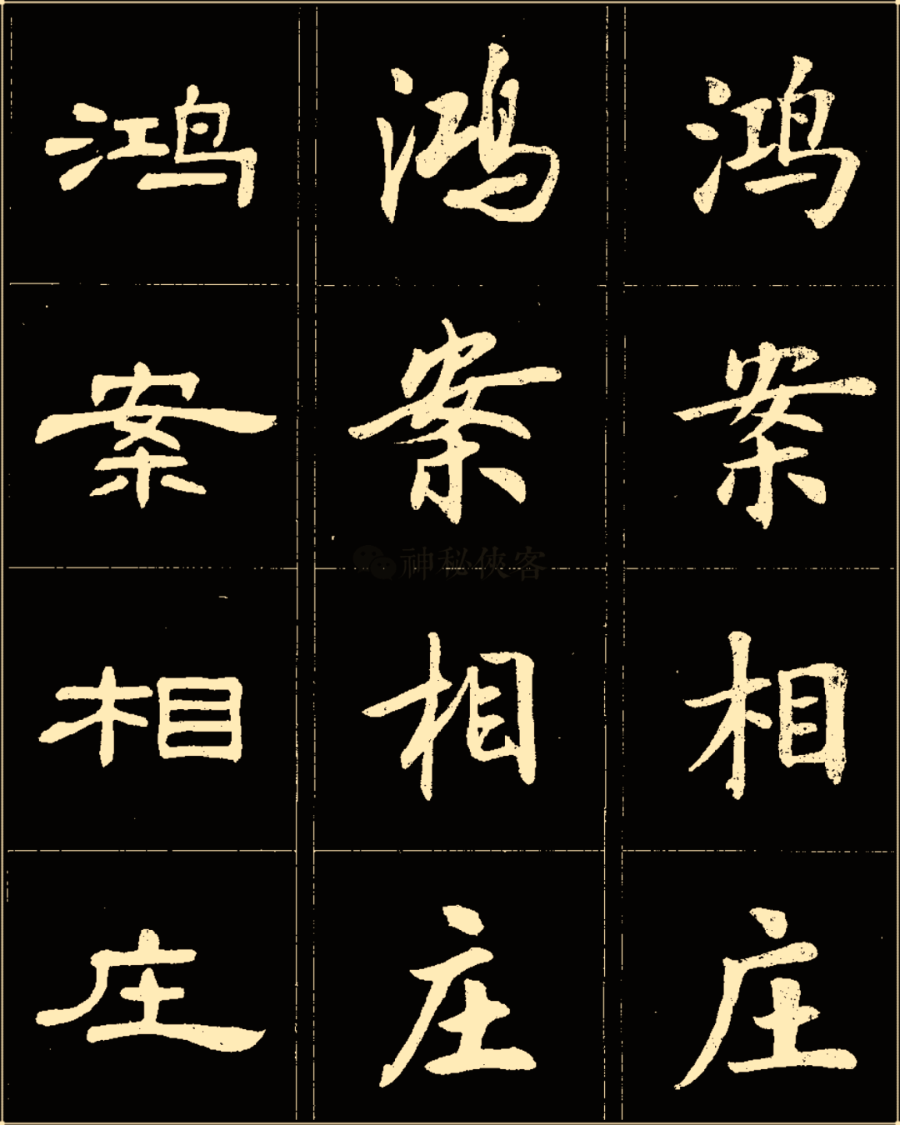 鸿 鸿 鸿
案 案 案
神秘侠客
相 相 相
庄 庄 庄